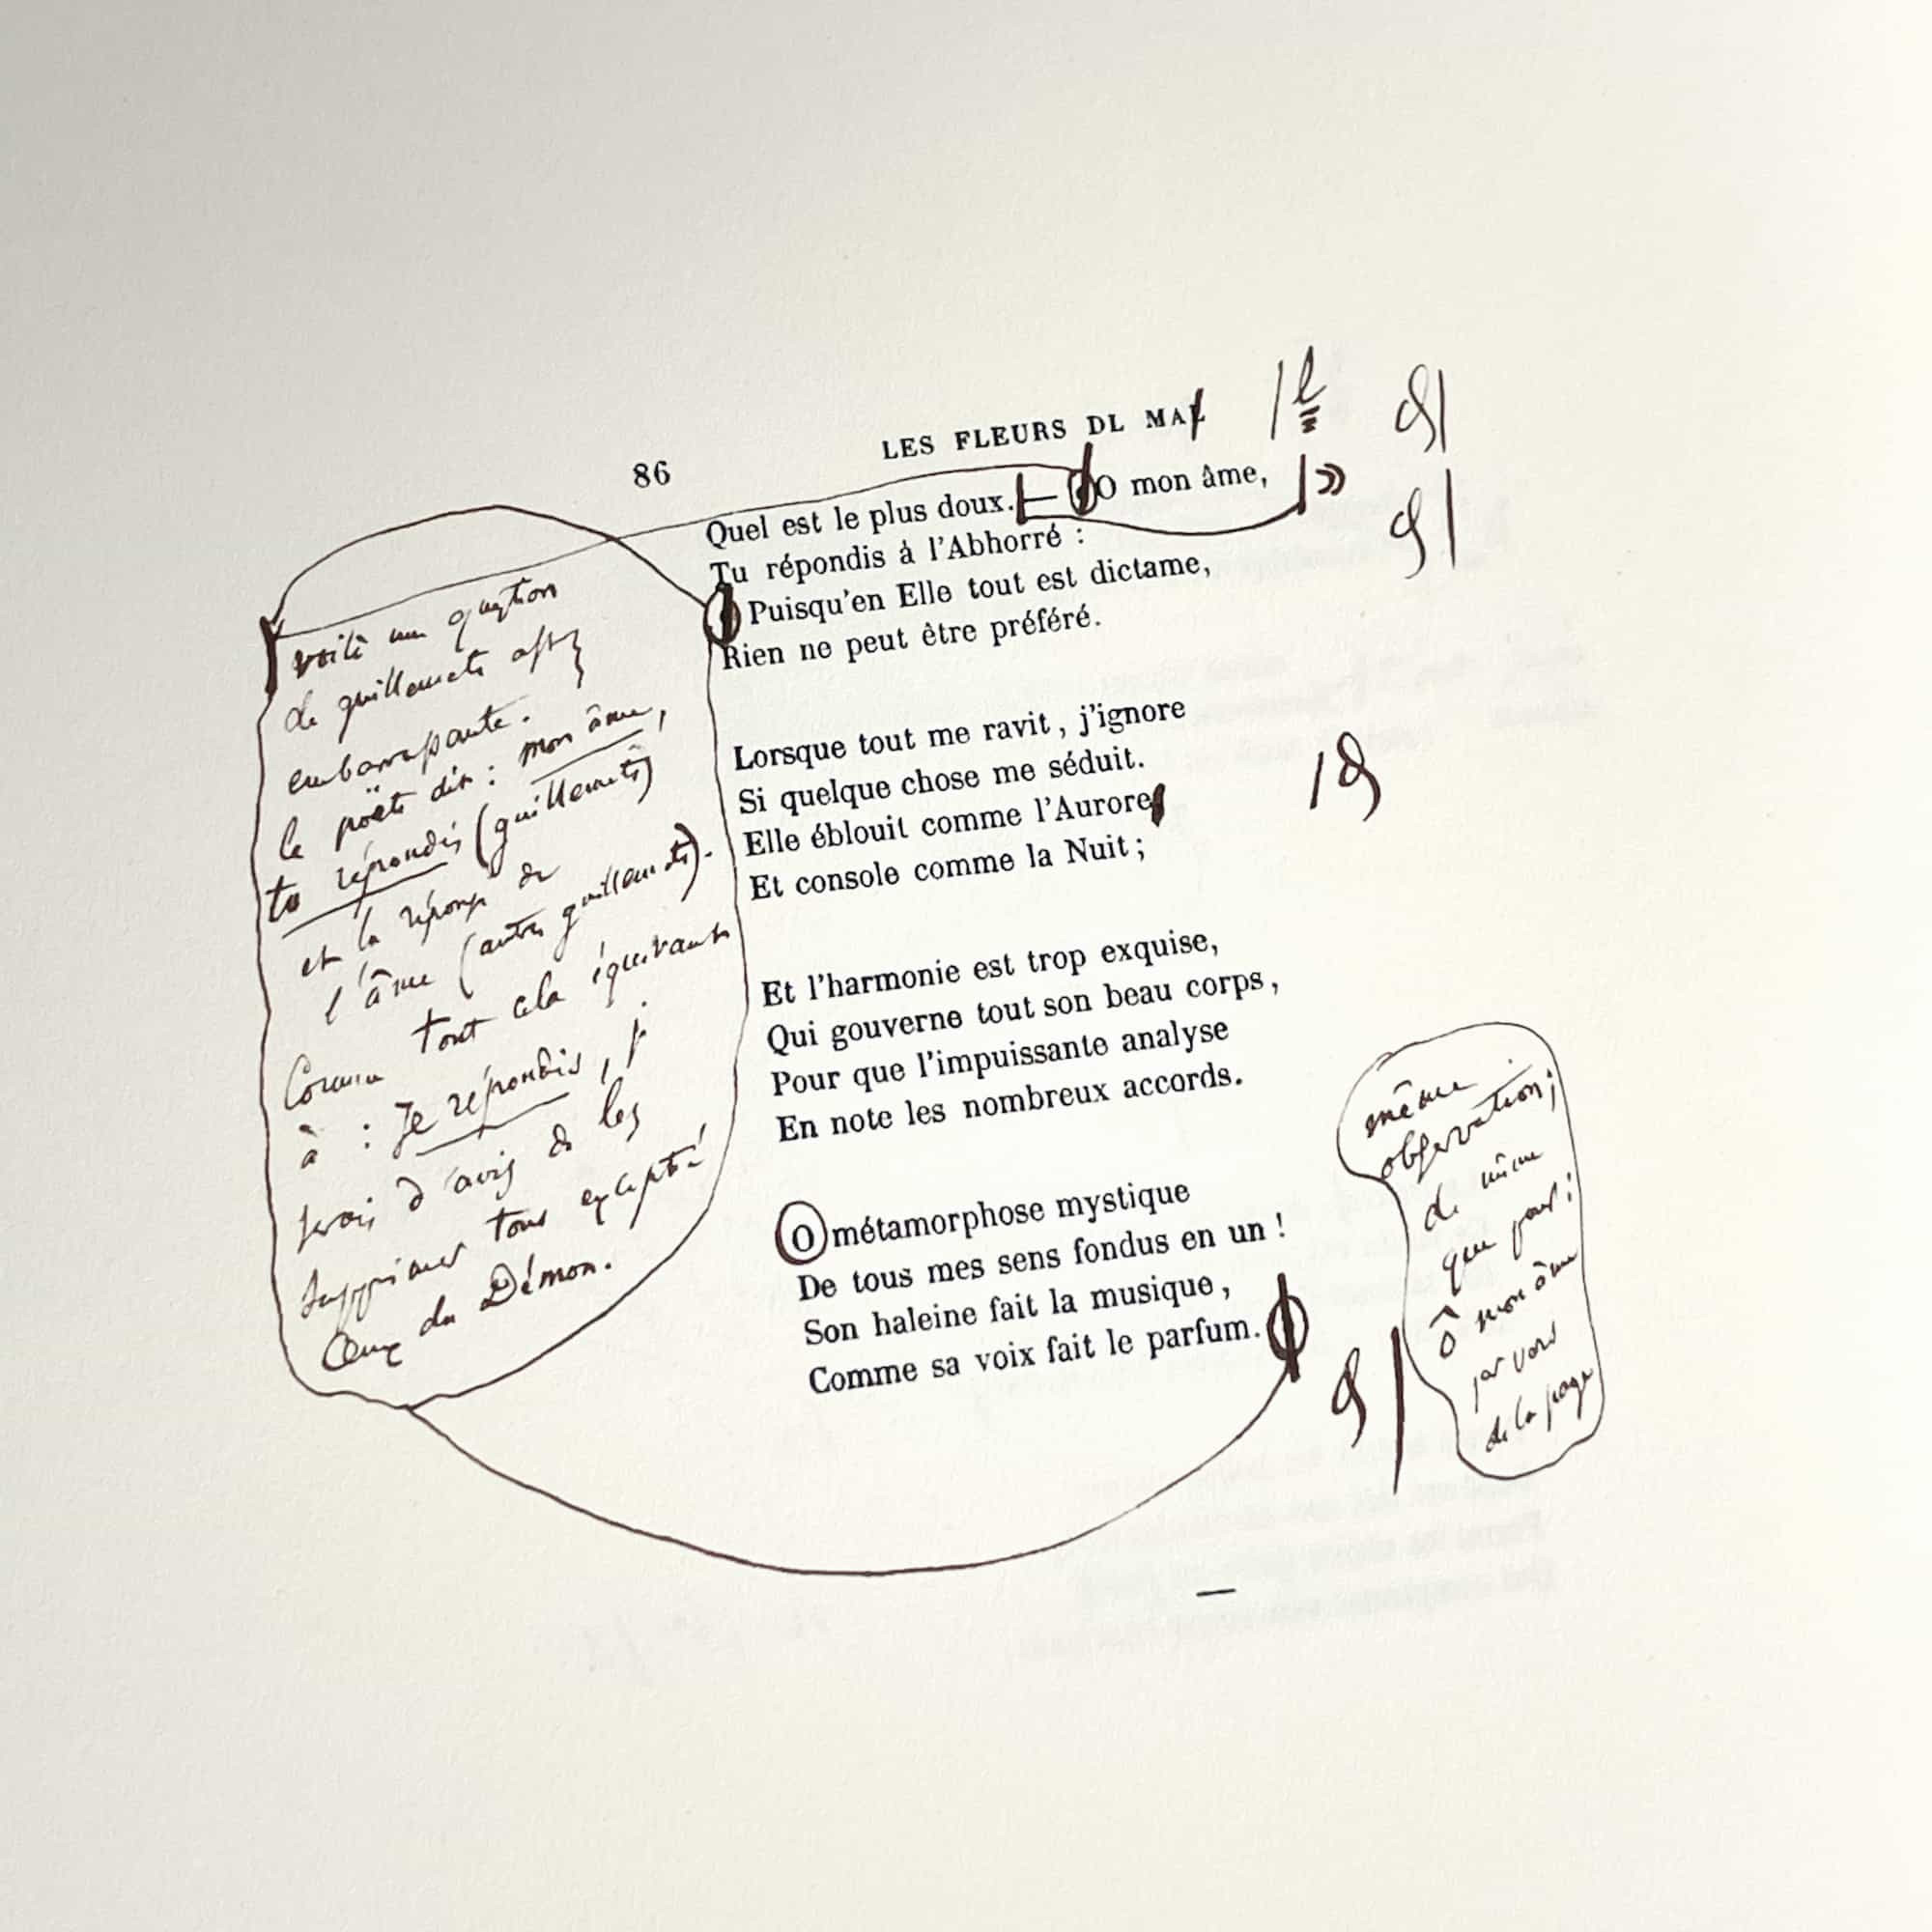 86
LES FLEURS DL MAL
Quel est le plus doux. — « O mon âme, »
Tu répondis à l'Abhorré :
« Puisqu'en Elle tout est dictame,
Rien ne peut être préféré.
Lorsque tout me ravit, j'ignore
Si quelque chose me séduit.
Elle éblouit comme l'Aurore,
Et console comme la Nuit ;
Et l'harmonie est trop exquise,
Qui gouverne tout son beau corps,
Pour que l'impuissante analyse
En note les nombreux accords.
O métamorphose mystique
De tous mes sens fondus en un !
Son haleine fait la musique,
Comme sa voix fait le parfum.
voilà une question
de guillemets assez
embarrassante.
le poëte dit : mon âme,
tu répondis (guillemets)
et la réponse de
l'âme (autres guillemets).
Comme tout cela équivaut
à : Je répondis, je
serais d'avis de les
supprimer tous excepté
Ceux du Démon.
même
observation ;
de même
que pour :
ô mon âme
de la page